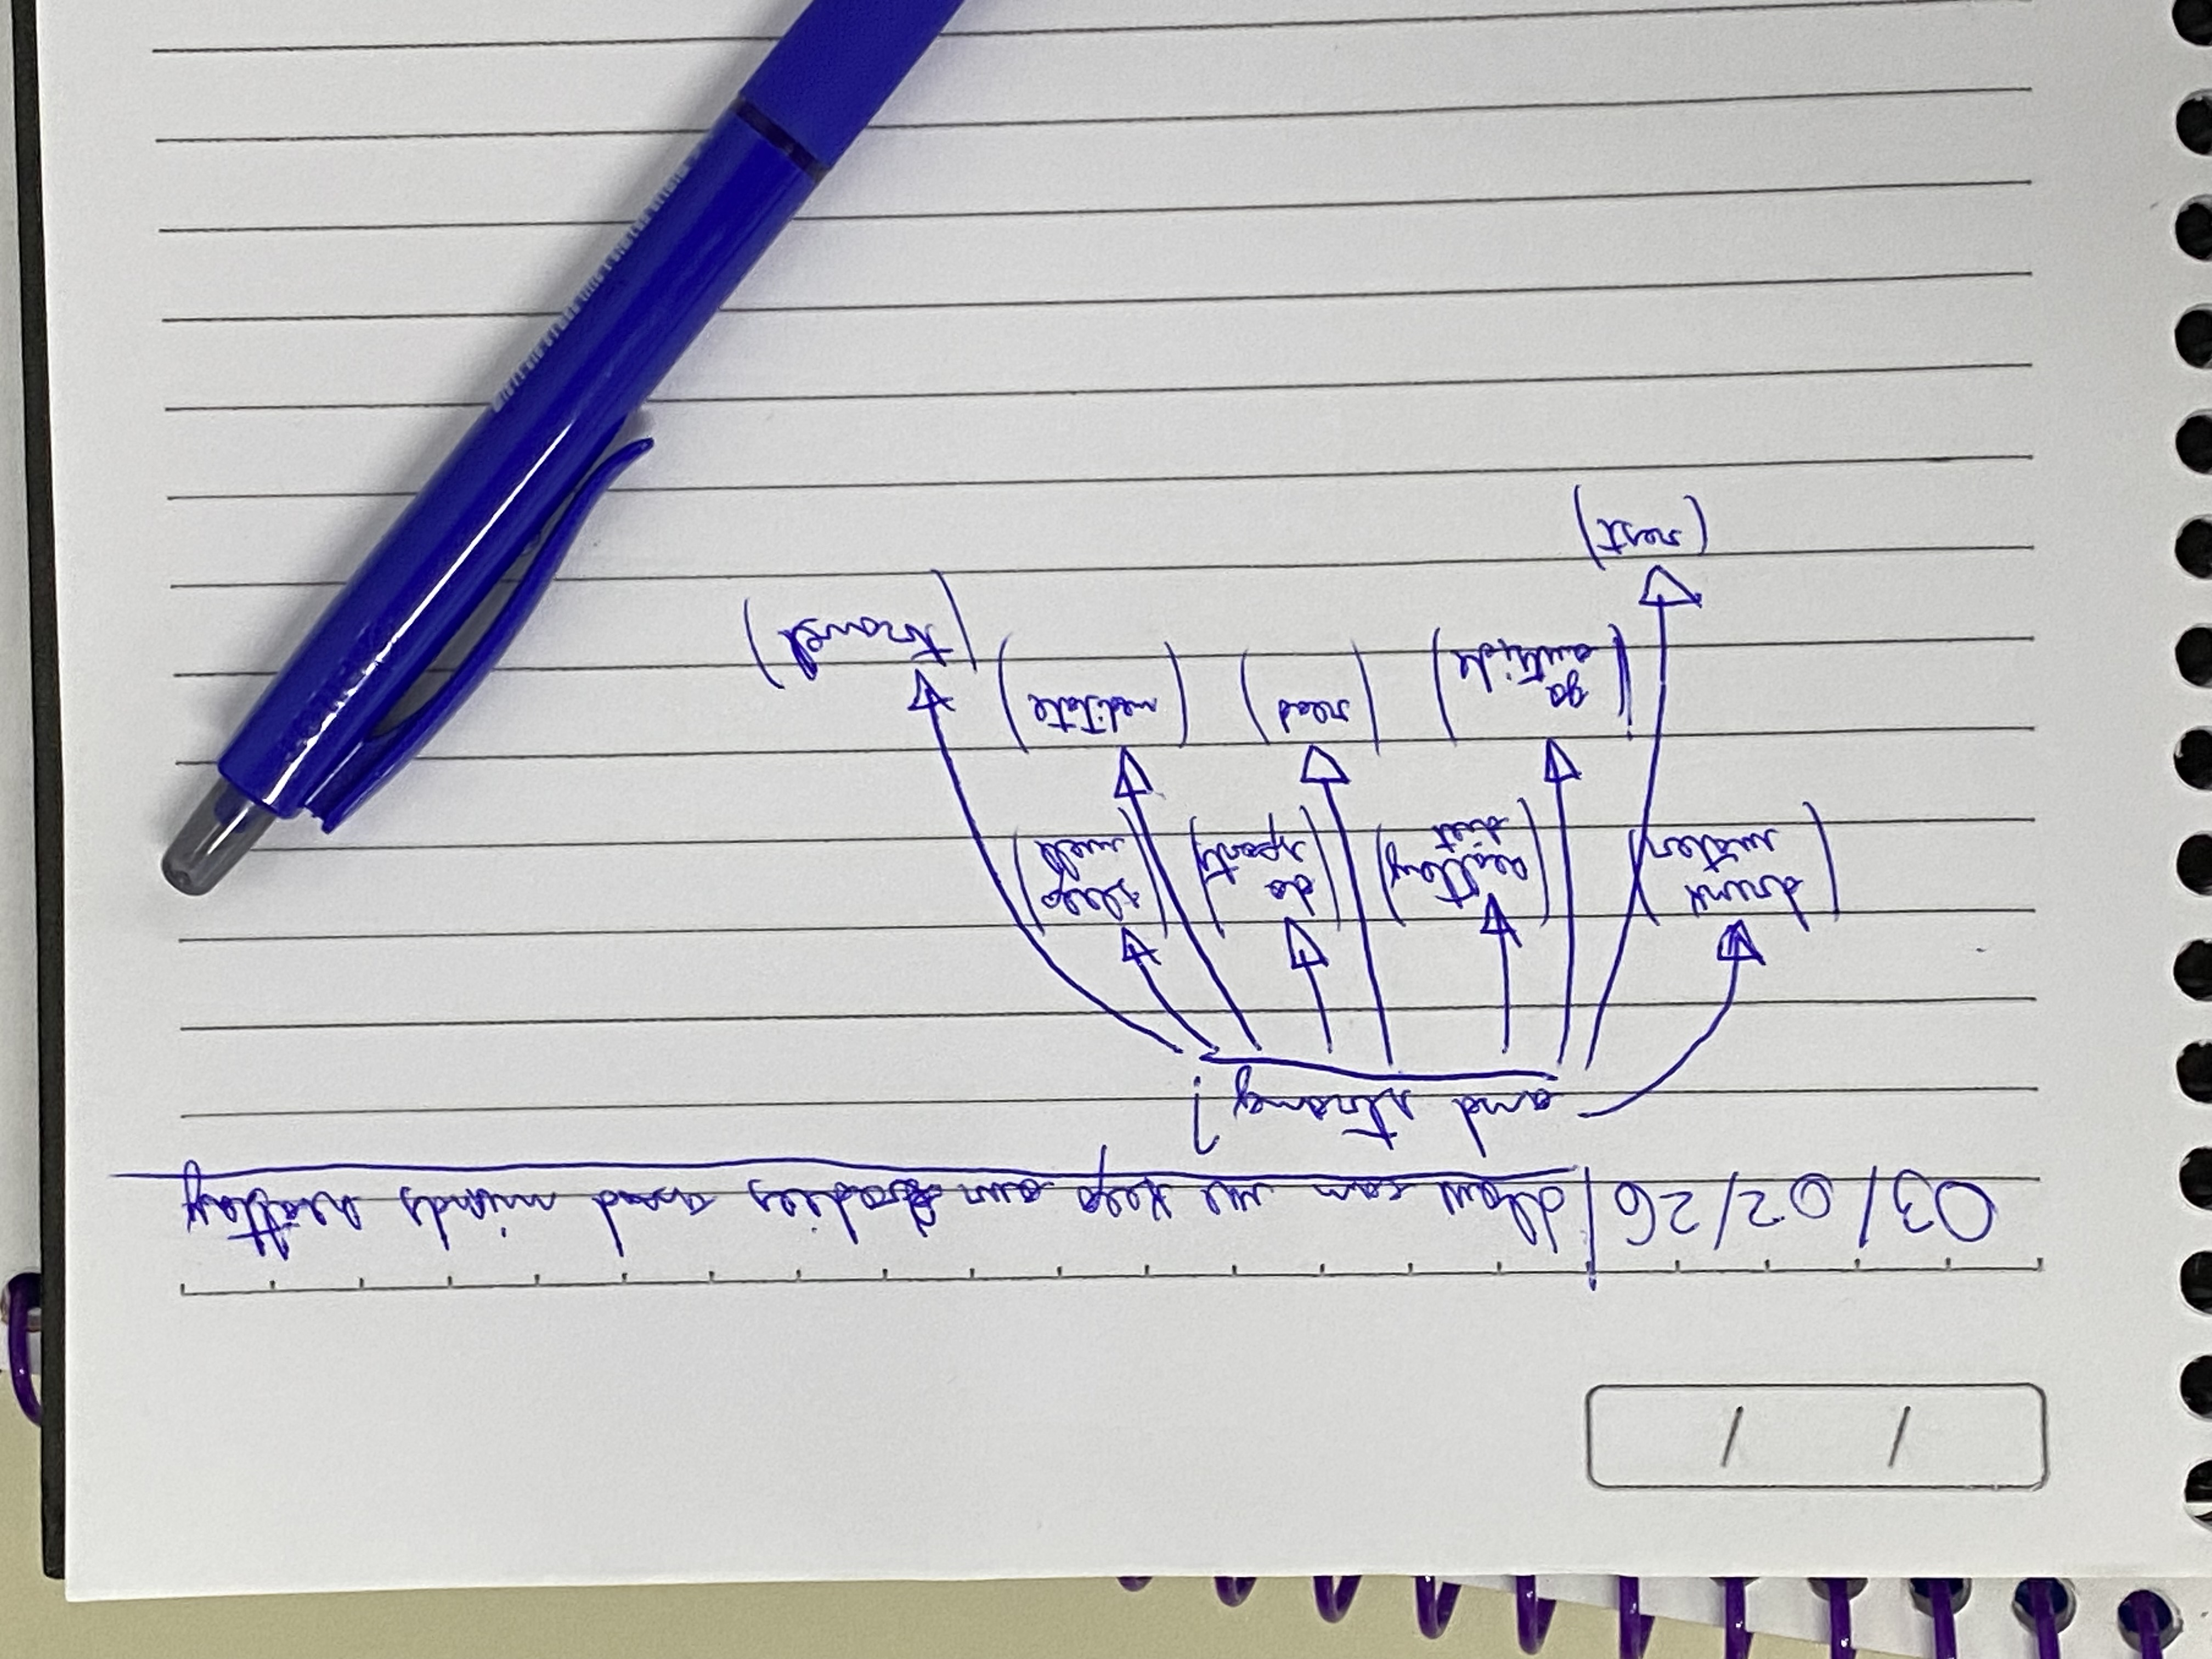 03/02/26 | How can we keep our bodies and minds healtey
and strong?
(drink water) (healtey diet) (do sports) (sleep well)
(go outside) (read) (meditate) (travel)
(rest)